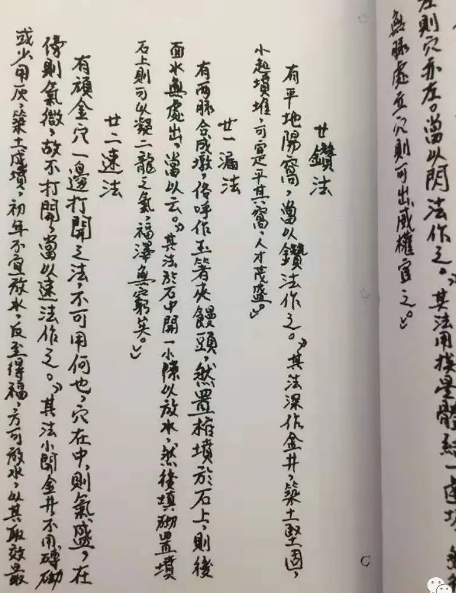 左則穴亦左。當以閃法作之。』其法用模星體結一處坟
無脉處立穴則可出威權宜之。』
廿鑽法
有平地陽窩，當以鑽法作之。』其法深作金井，築土堅固，
小起墳堆，可宜平其窩，人才茂盛。』
廿一漏法
有兩脉合成墩，俗呼作玉箸夾饅頭，然置棺墳於石上，則後
面水無處出。當以云。』其法於石中開一小隙以放水，然後填砌置墳
石上則可以凝二龍之氣，福澤無窮矣。』
廿二速法
有頑金穴一邊打開之法，不可用何也，穴在中，則氣盛，在
傍則氣微，故不打開，當以速法作之。』其法小開金井不用磚砌
或少用灰，築土成墳，初年不宜放水，反至得福，方可放水，以其取效最